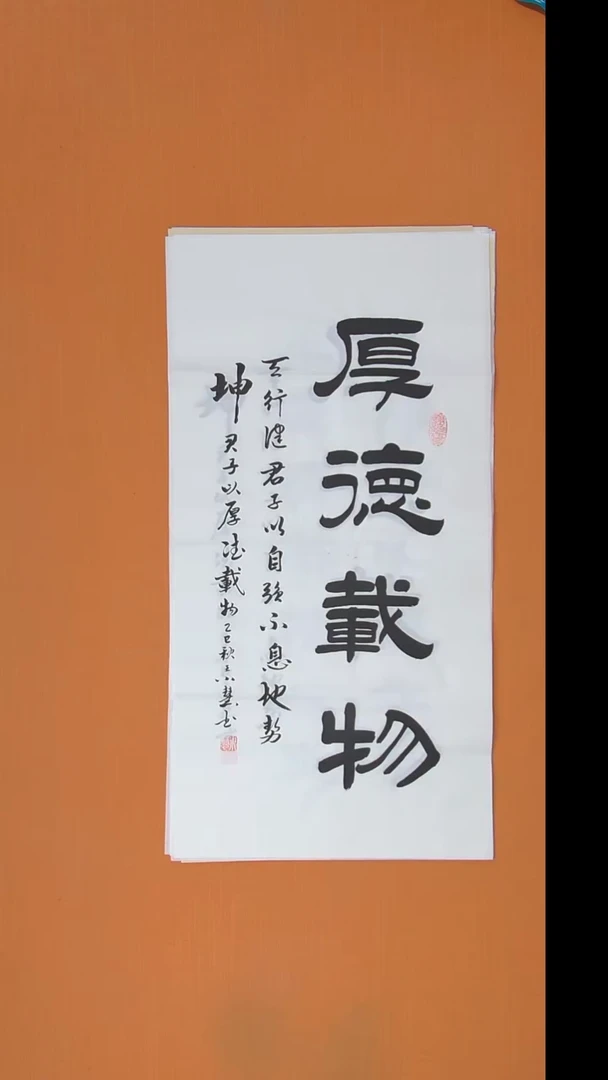 厚德載物
天行健君子以自強不息地勢
坤君子以厚德載物乙巳秋
书